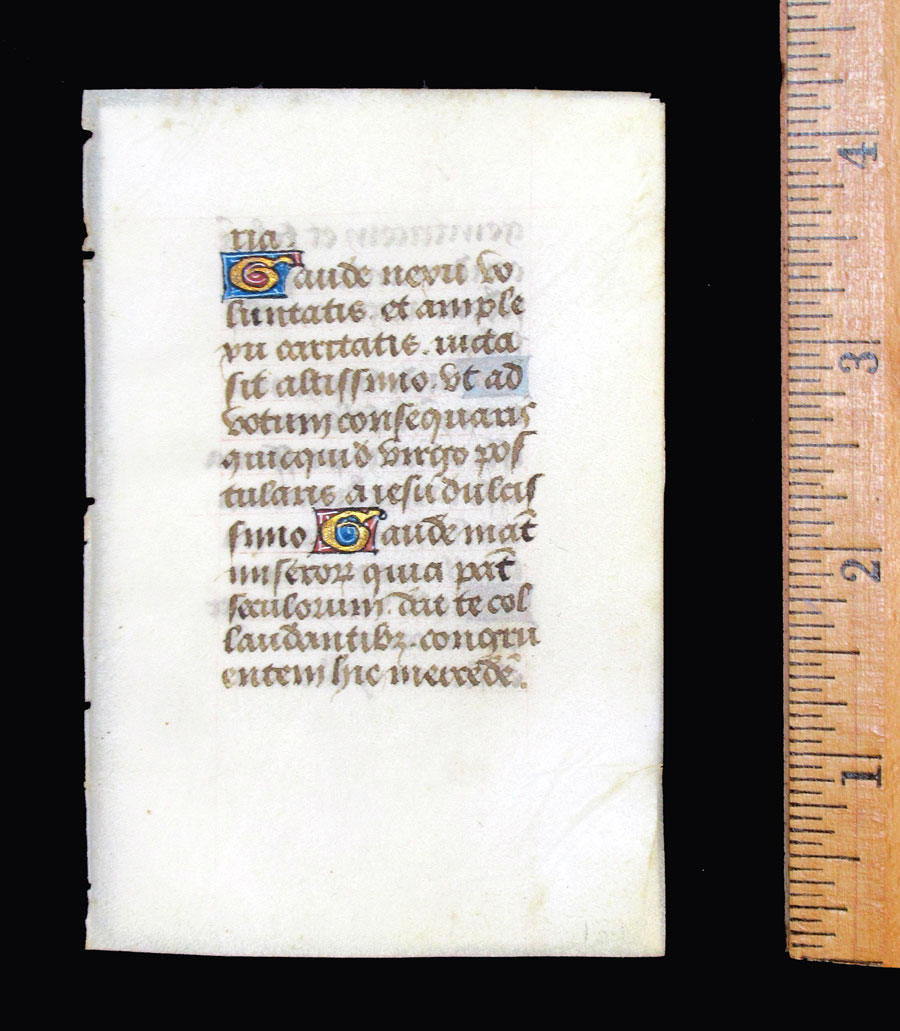 ria
Gaude nexu vo
luntatis et ample
xu caritatis. iucta
sit altissimo. vt ad
votum consequaris
quicquid virgo pos
tularis a iesu dulcis
simo Gaude mat̄
miseror quia pat̄
seculorum dat te col
laudantibꝫ. congru
entem hic mercedē.
4
3
2
1